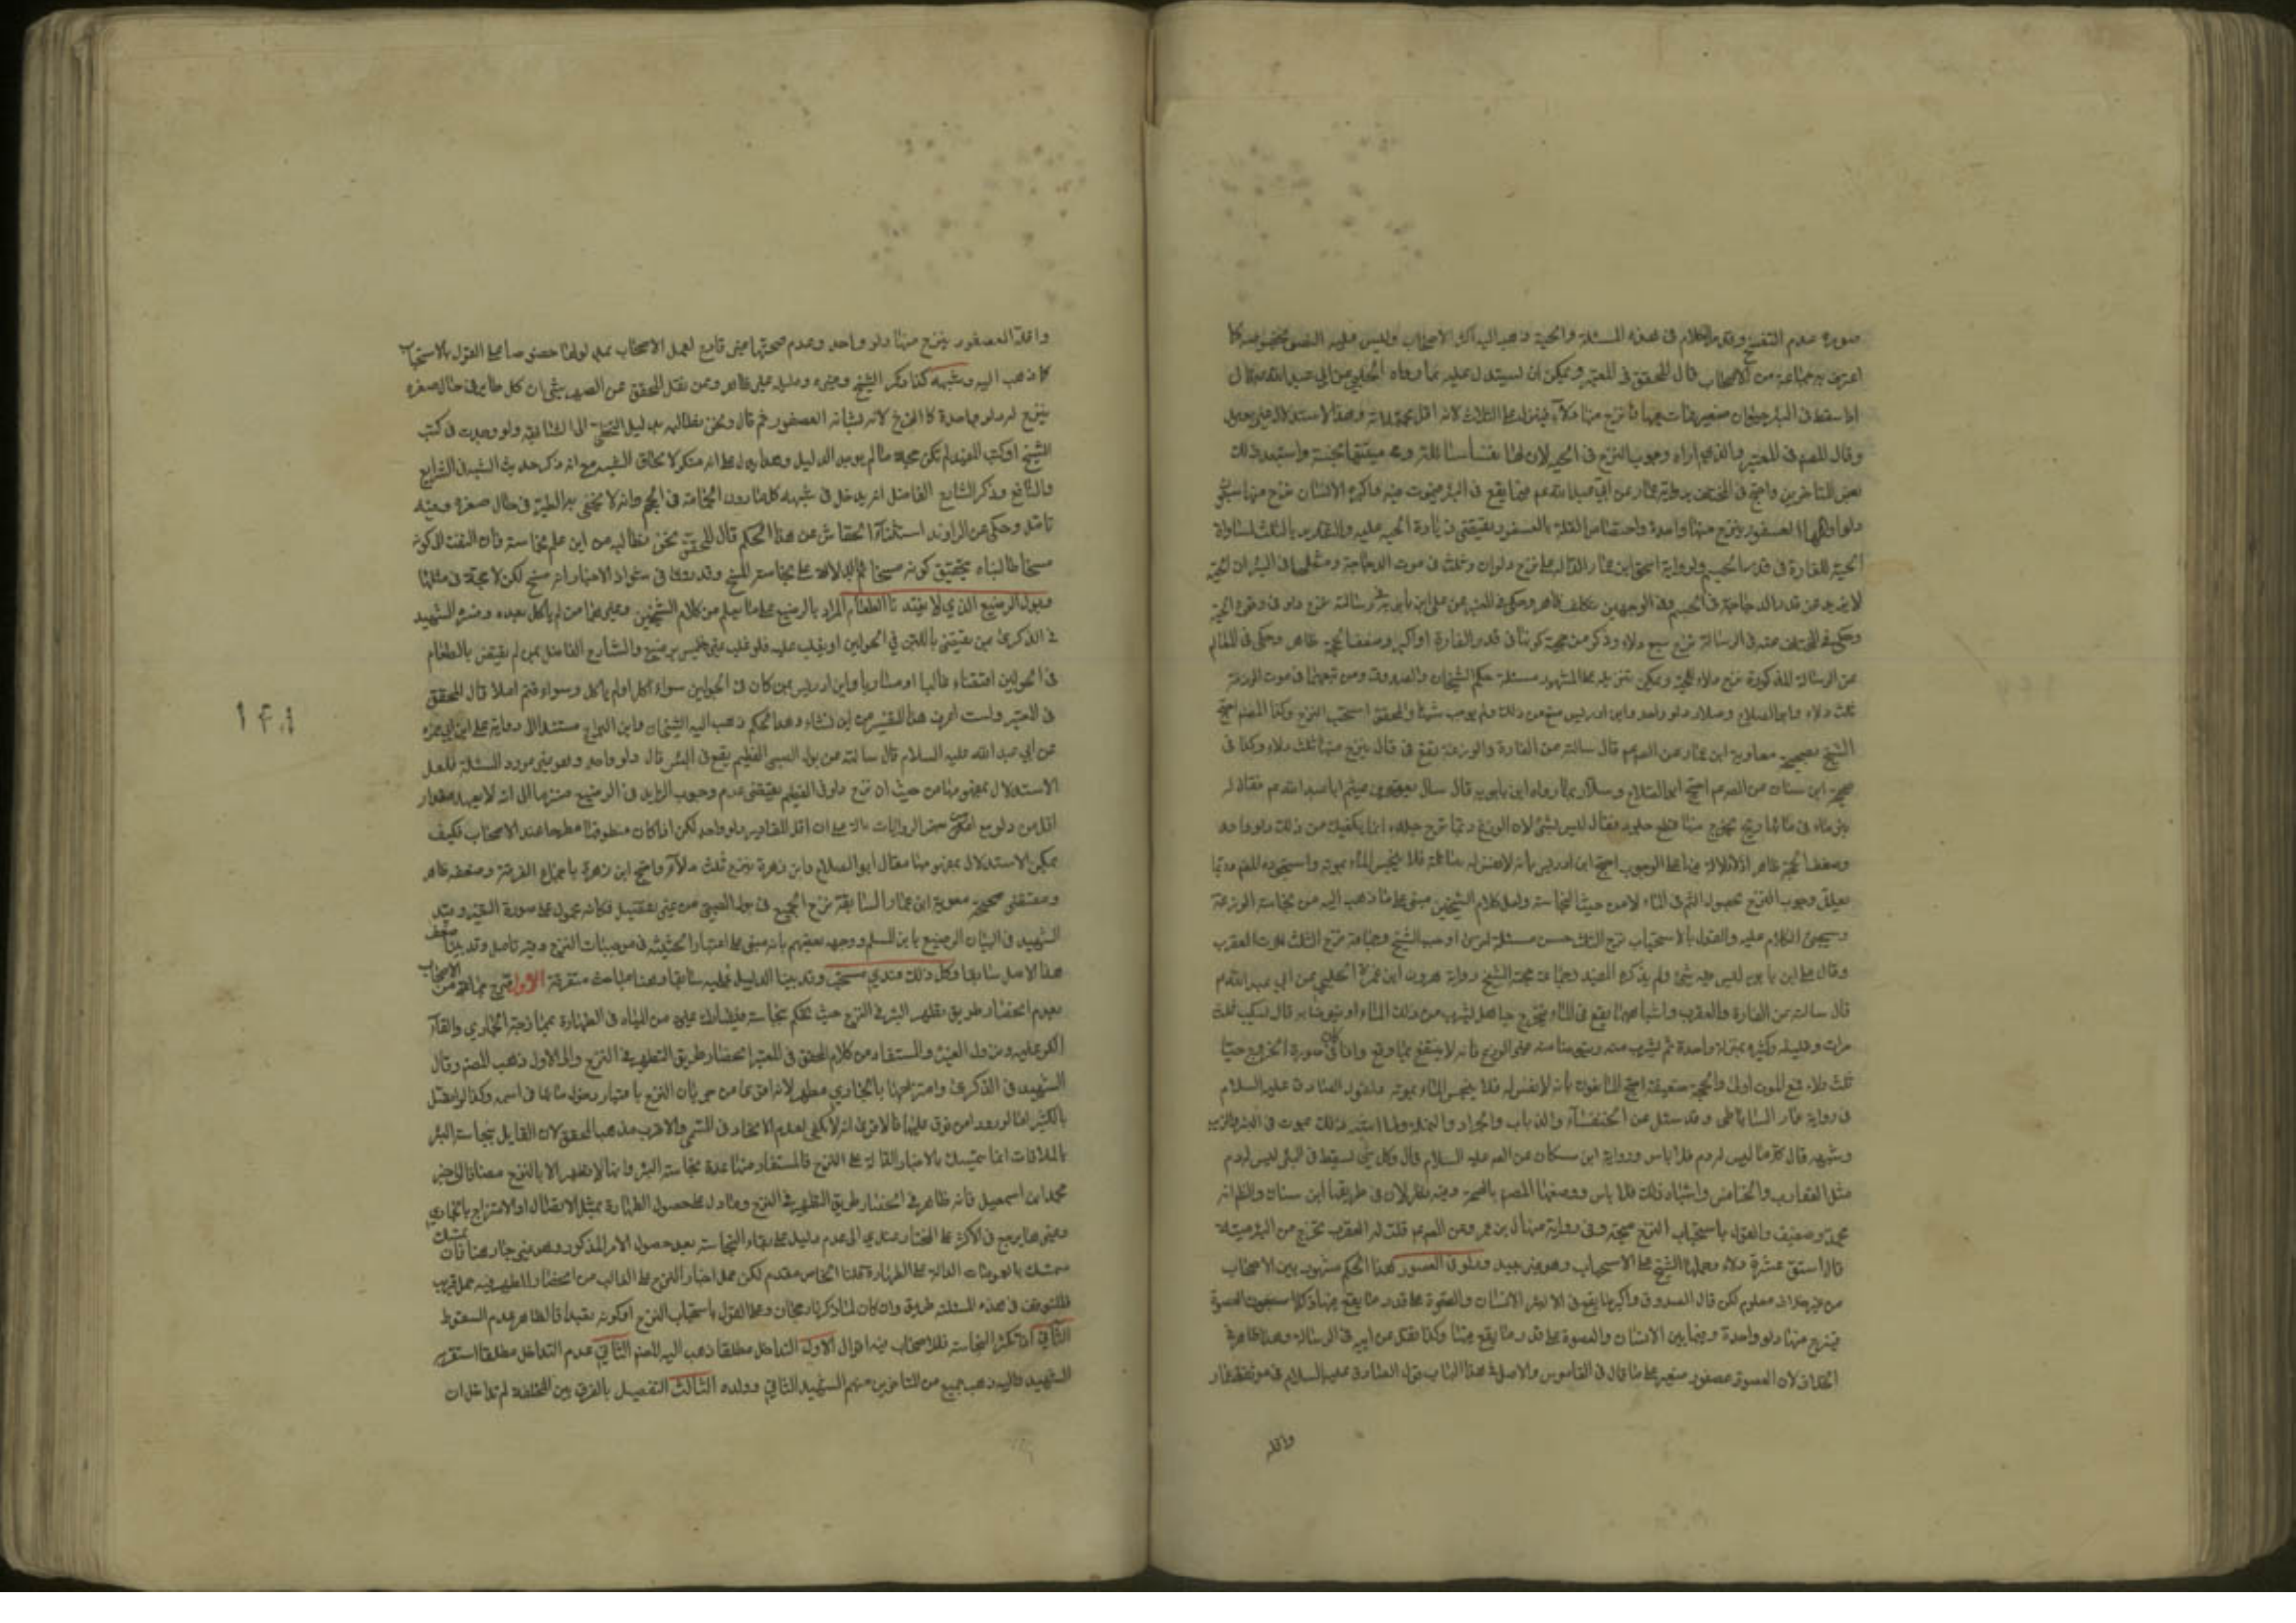 صورة عدم التفسخ وقد مر الكلام في هذه المسئلة والحية ذهب اليه اكثر الاصحاب وليس فيه النص بخصوصه كما
اعترف به جماعة من الاصحاب قال المحقق في المعتبر ويمكن ان يستدل عليه بما رواه الحلبي عن ابي عبد الله قال
اذا سقط في البئر حيوان صغير فمات فيها فانزح منها دلاء فينزل على الثلاث لانه اقل
وقال المصنف في المعتبر والذي اراه وجوب النزح في الحية لان لها نفسا سائلة وميتتها نجسة واستبعد ذلك
بعض المتاخرين واحتج في المختلف برواية عمار عن ابي عبد الله عم فيما يقع في البئر فيموت فيه فاكبره الانسان ينزح منها سبعون
دلوا واقلها العصفور ينزح منها واحدة واختصاص القلة بالعصفور يقتضي زيادة الحية عليه والتقدير بالثلث لمساواة
الحية للفارة في قدر الجسم ولرواية اسحق ابن عمار الدالة على نزح دلوان وثلث في موت الدجاجة ومثلها في البئر لان الحية
لا يزيد عن قدر الدجاجة في الجسم وفي الوجهين تكلف ظاهر وحكى في المعتبر عن علي ابن بابويه في رسالته ينزح دلو في وقوع الحية
وحكى في المختلف عنه في الرسالة نزح سبع دلاء وذكر من حجته كونها في قدر الفارة او اكبر وضعف الحجة ظاهر وحكى في المعالم
عن الرسالة المذكورة نزح دلاء للحية ويمكن تنزيله على المشهور مسئلة حكم الشيخان والصدوق ومن تبعهما في موت الوزغة
ثلث دلاء وابو الصلاح وسلار دلو واحد وابن ادريس منع من ذلك ولم يوجب شيئا والمحقق استحب النزح وكذا المصنف احتج
الشيخ بصحيحة معاوية ابن عمار عن الصم قال سالته عن الفارة والوزغة تقع في قال ينزح منها ثلث دلاء وكذا في
صحيحة ابن سنان عن الصم احتج ابو الصلاح وسلار بما رواه ابن بابويه قال سال يعقوب ابن ميثم ابا عبد الله عم فقال له
بئر ماء في مائها ريح يخرج منها قطع جلود فقال ليس بشئ لان الوزغ ربما طرح جلده انما يكفيك من ذلك دلو واحد
وضعف الحجة ظاهر اذ لا دلالة فيها على الوجوب احتج ابن ادريس بانه لا نفس له سائلة فلا ينجس الماء بموته واستجوده المصنف وربما
يعلل وجوب النزح بحصول الضرر في الماء لا من حيث النجاسة ولعل كلام الشيخين مبني على ما ذهب اليه من نجاسة الوزغة
وسيجئ الكلام عليه والقول بالاستحباب نزح الثلث حسن مسئلة اوجب الشيخ وجماعة نزح الثلث لموت العقرب
وقال علي ابن بابويه ليس فيه شئ ولم يذكره المفيد وجماعة حجة الشيخ رواية هرون ابن حمزة الغنوي عن ابي عبد الله عم
قال سالته عن الفارة والعقرب واشباههما يقع في الماء فيخرج حيا هل يشرب من ذلك الماء او يتوضا به قال تسكب ثلث
مرات وقليله وكثيره بمنزلة واحدة ثم يشرب منه ويتوضا منه غير الوزغ فانه لا ينتفع بما وقع واذا كان صورة الخروج حيا
ثلث دلاء فمع الموت اولى والحجة ضعيفة احتج النافون بانه لا نفس له فلا ينجس الماء بموته ولقول الصادق عليه السلام
في رواية عمار الساباطي وقد سئل عن الخنفساء والذباب والجراد والنملة وما اشبه ذلك يموت في البئر والزيت
وشبهه قال كل ما ليس له دم فلا باس ورواية ابن مسكان عن الصم عليه السلام قال وكل شئ يسقط في البئر ليس له دم
مثل العقارب والخنافس واشباه ذلك فلا باس ووصفها المصنف بالصحة وفيه نظر لان في طريقها ابن سنان والظاهر انه
محمد وضعيف والقول باستحباب النزح متجه وفي رواية منهال بن عمر وعن الصم قلت له العقرب تخرج من البئر ميتة
قال استق عشرة دلاء وحملها الشيخ على الاستحباب وهو غير بعيد ودلو في العصفور هذا الحكم مشهور بين الاصحاب
من غير خلاف معلوم لكن قال الصدوق واكبر ما يقع في الابئر الانسان والصعوة على قدر ما يقع فيها
فينزح منها دلو واحدة وفيما بين الانسان والصعوة على قدر ما يقع فيها وكذا نقل عن ابيه في الرسالة وهذا ظاهر في
الخلاف لان الصعوة عصفور صغير على ما قال في القاموس والاصل في هذا الباب قول الصادق عليه السلام في موثقة عمار
واقله
واقله العصفور ينزح منها دلو واحد وعدم صحتها غير قادح لعمل الاصحاب بمدلولها خصوصا على القول بالاستحباب
كما ذهب اليه وشبهه كذا ذكر الشيخ وغيره ودليله غير ظاهر وعن نقل المحقق عن الصهرشتي ان كل طاير في حال صغره
ينزح له دلو واحدة كالفرخ لانه يشابه العصفور ثم قال ونحن نطالبه بدليل التخطي الى المشابهة ولو وجدت في كتب
الشيخ او كتب المفيد لم تكن حجة ما لم يوجد الدليل وهذا يدل على انه منكر لالحاق الشبه مع انه ذكر حديث الشبه في الشرايع
والنافع وذكر الشارح الفاضل انه يدخل في شبهه كل ما دون الحمامة في الحجم وانه لا يختص بالطير في حال صغره وفيه
تامل وحكى عن الراوندي استثناء الخفاش عن هذا الحكم قال المحقق نحن نطالبه من اين علم نجاسته فان التفت لا كونه
مسخا طالبناه بتحقيق كونه مسخا ثم الدلالة على نجاسة المسخ وقد روي في شواذ الاخبار انه مسخ لكن لا حجة في مثلها
وبول الرضيع الذي لا يغتذ بالطعام المراد بالرضيع على ما يعلم من كلام الشيخين وغيرهما من لم ياكل بعده وفسره الشهيد
في الذكرى بمن يغتذي باللبن في الحولين او يغلب عليه فلو غلب غيره فليس برضيع والشارح الفاضل بمن لم يغتذ بالطعام
في الحولين اغتذاء غالبا او مساويا وابن ادريس بمن كان في الحولين سواء اكل او لم ياكل وسواء فطم ام لا قال المحقق
في المعتبر ولست اعرف هذا التفسير من اين نشاء وهذا الحكم ذهب اليه الشيخان وابن البراج مستندا الى رواية علي ابن ابي حمزة
عن ابي عبد الله عليه السلام قال سالته عن بول الصبي الفطيم يقع في البئر قال دلو واحد وهو غير مورد المسئلة فلعل
الاستدلال بمفهومها من حيث ان نزح دلو في الفطيم يقتضي عدم وجوب الزايد في الرضيع منزها الى انه لا يعهد مقدار
اقل من دلو بل بعض الروايات دالة على ان اقل المقادير دلو واحد لكن اذا كان منطوقها مطرحا عند الاصحاب فكيف
يمكن الاستدلال بمفهومها فقال ابو الصلاح وابن زهرة ينزح ثلث دلاء واحتج ابن زهرة باجماع الفرقة وضعفه ظاهر
ومقتضى صحيحة معوية ابن عمار السابقة نزح الجميع في بول الصبي من غير تفصيل فكانه محمول على صورة التغير وقيد
الشهيد في البيان الرضيع بابن المسلم ووجهه بعضهم بانه مبني على اعتبار الحيثية في موجبات النزح وفيه تامل وقد بينا ضعف
هذا الاصل سابقا وكل ذلك عندي مستحب وقد بينا الدليل عليه سابقا وهنا مباحث متفرقة الاول صرح جماعة من الاصحاب
بعدم انحصار طريق تطهير البئر في النزح حيث يحكم نجاسته فيشارك غيره من المياه في الطهارة بممازجة الجاري والقاء
الكر عليه ونزول الغيث والمستفاد من كلام المحقق في المعتبر انحصار طريق التطهير في النزح والى الاول ذهب المصنف وقال
الشهيد في الذكرى وامتزاجها بالجاري مطهر لانه اقوى من جريان النزح باعتبار دخول مائها في اسمه وكذا لو اتصل
بالكثير اما لو ورد من فوق عليها فالاقوى انه لا يكفي لعدم الاتحاد في المسمى والاقرب مذهب المحقق لان القايل بنجاسة البئر
بالملاقات انما يتمسك بالاخبار الدالة على النزح فالمستفاد منها عدة نجاسة البئر وانها لا يطهر الا بالنزح مضافا الى خبر
محمد ابن اسمعيل فانه ظاهر في انحصار طريق التطهير في النزح وما دل على حصول الطهارة بمثل الاتصال او الامتزاج بالجاري
وغيرهما يرجع في الاكثر على المختار عندي الى عدم دليل على بقاء النجاسة بعد حصول الامر المذكور وهو غير جار هنا فان تمسك
متمسك بالعمومات الدالة على الطهارة قلنا الخاص مقدم لكن حمل اخبار النزح على الغالب من انحصار المطهر فيه حمل قريب
فللتوقف في هذه المسئلة طريق وان كان لما ذكرنا رجحان وعلى القول باستحباب النزح او كونه تعبدا فالظاهر عدم السقوط
الثاني اذا تكثر النجاسة فللاصحاب فيه اقوال الاول التداخل مطلقا ذهب اليه المصنف الثاني عدم التداخل مطلقا استقربه
الشهيد واليه ذهب جمع من المتاخرين منهم الشهيد الثاني وولده الثالث التفصيل بالفرق بين المختلفة لم تداخل ان